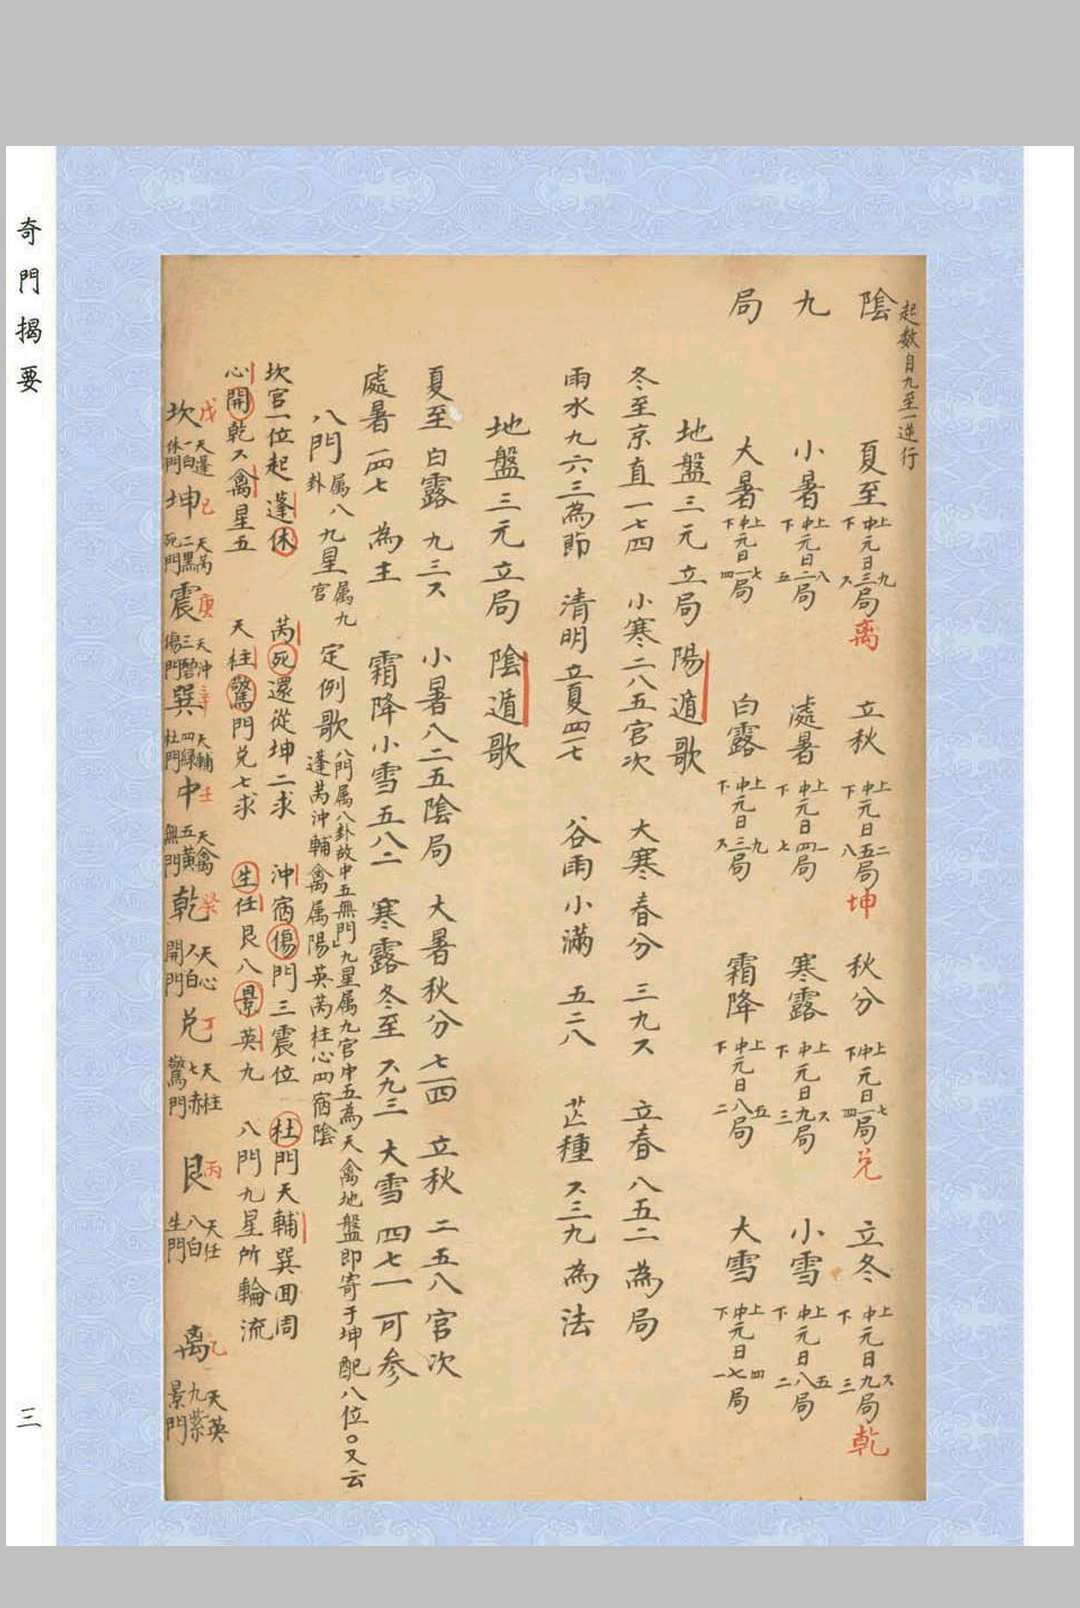 奇門揭要
三
起数自九至一逆行
陰 夏至 上中下元日九三六局 離 立秋 上中下元日二五八局 坤 秋分 上中下元日七一四局 兑 立冬 上中下元日六九三局 乾
九 小暑 上中下元日八二五局 處暑 上中下元日一四七局 寒露 上中下元日六九三局 小雪 上中下元日五八二局
局 大暑 上中下元日七一四局 白露 上中下元日九三六局 霜降 上中下元日五八二局 大雪 上中下元日四七一局
地盤三元立局 陽遁歌
冬至京直一七四 小寒二八五官次 大寒春分三九六 立春八五二為局
雨水九六三為節 清明立夏四一七 谷雨小滿五二八 芒種六三九為法
地盤三元立局 陰遁歌
夏至白露九三六 小暑八二五陰局 大暑秋分七一四 立秋二五八官次
處暑一四七為主 霜降小雪五八二 寒露冬至六九三 大雪四七一可参
八門属八卦 九星属九官 定例歌 八門属八卦故中五無門九星属九官中五為天禽地盤即寄于坤配八位○又云
蓬芮沖輔禽属陽英芮柱心四宿陰
坎官一位起蓬休 芮死還從坤二求 沖宿傷門三震位 杜門天輔巽囬周
心開乾六禽星五 天柱驚門兑七求 生任艮八景英九 八門九星所輪流
戊 己 庚 辛 壬 癸 丁 丙 乙
坎 天蓬一白休門 坤 天芮二黑死門 震 天沖三碧傷門 巽 天輔四緑杜門 中 天禽五黄無門 乾 天心六白開門 兑 天柱七赤驚門 艮 天任八白生門 離 天英九紫景門